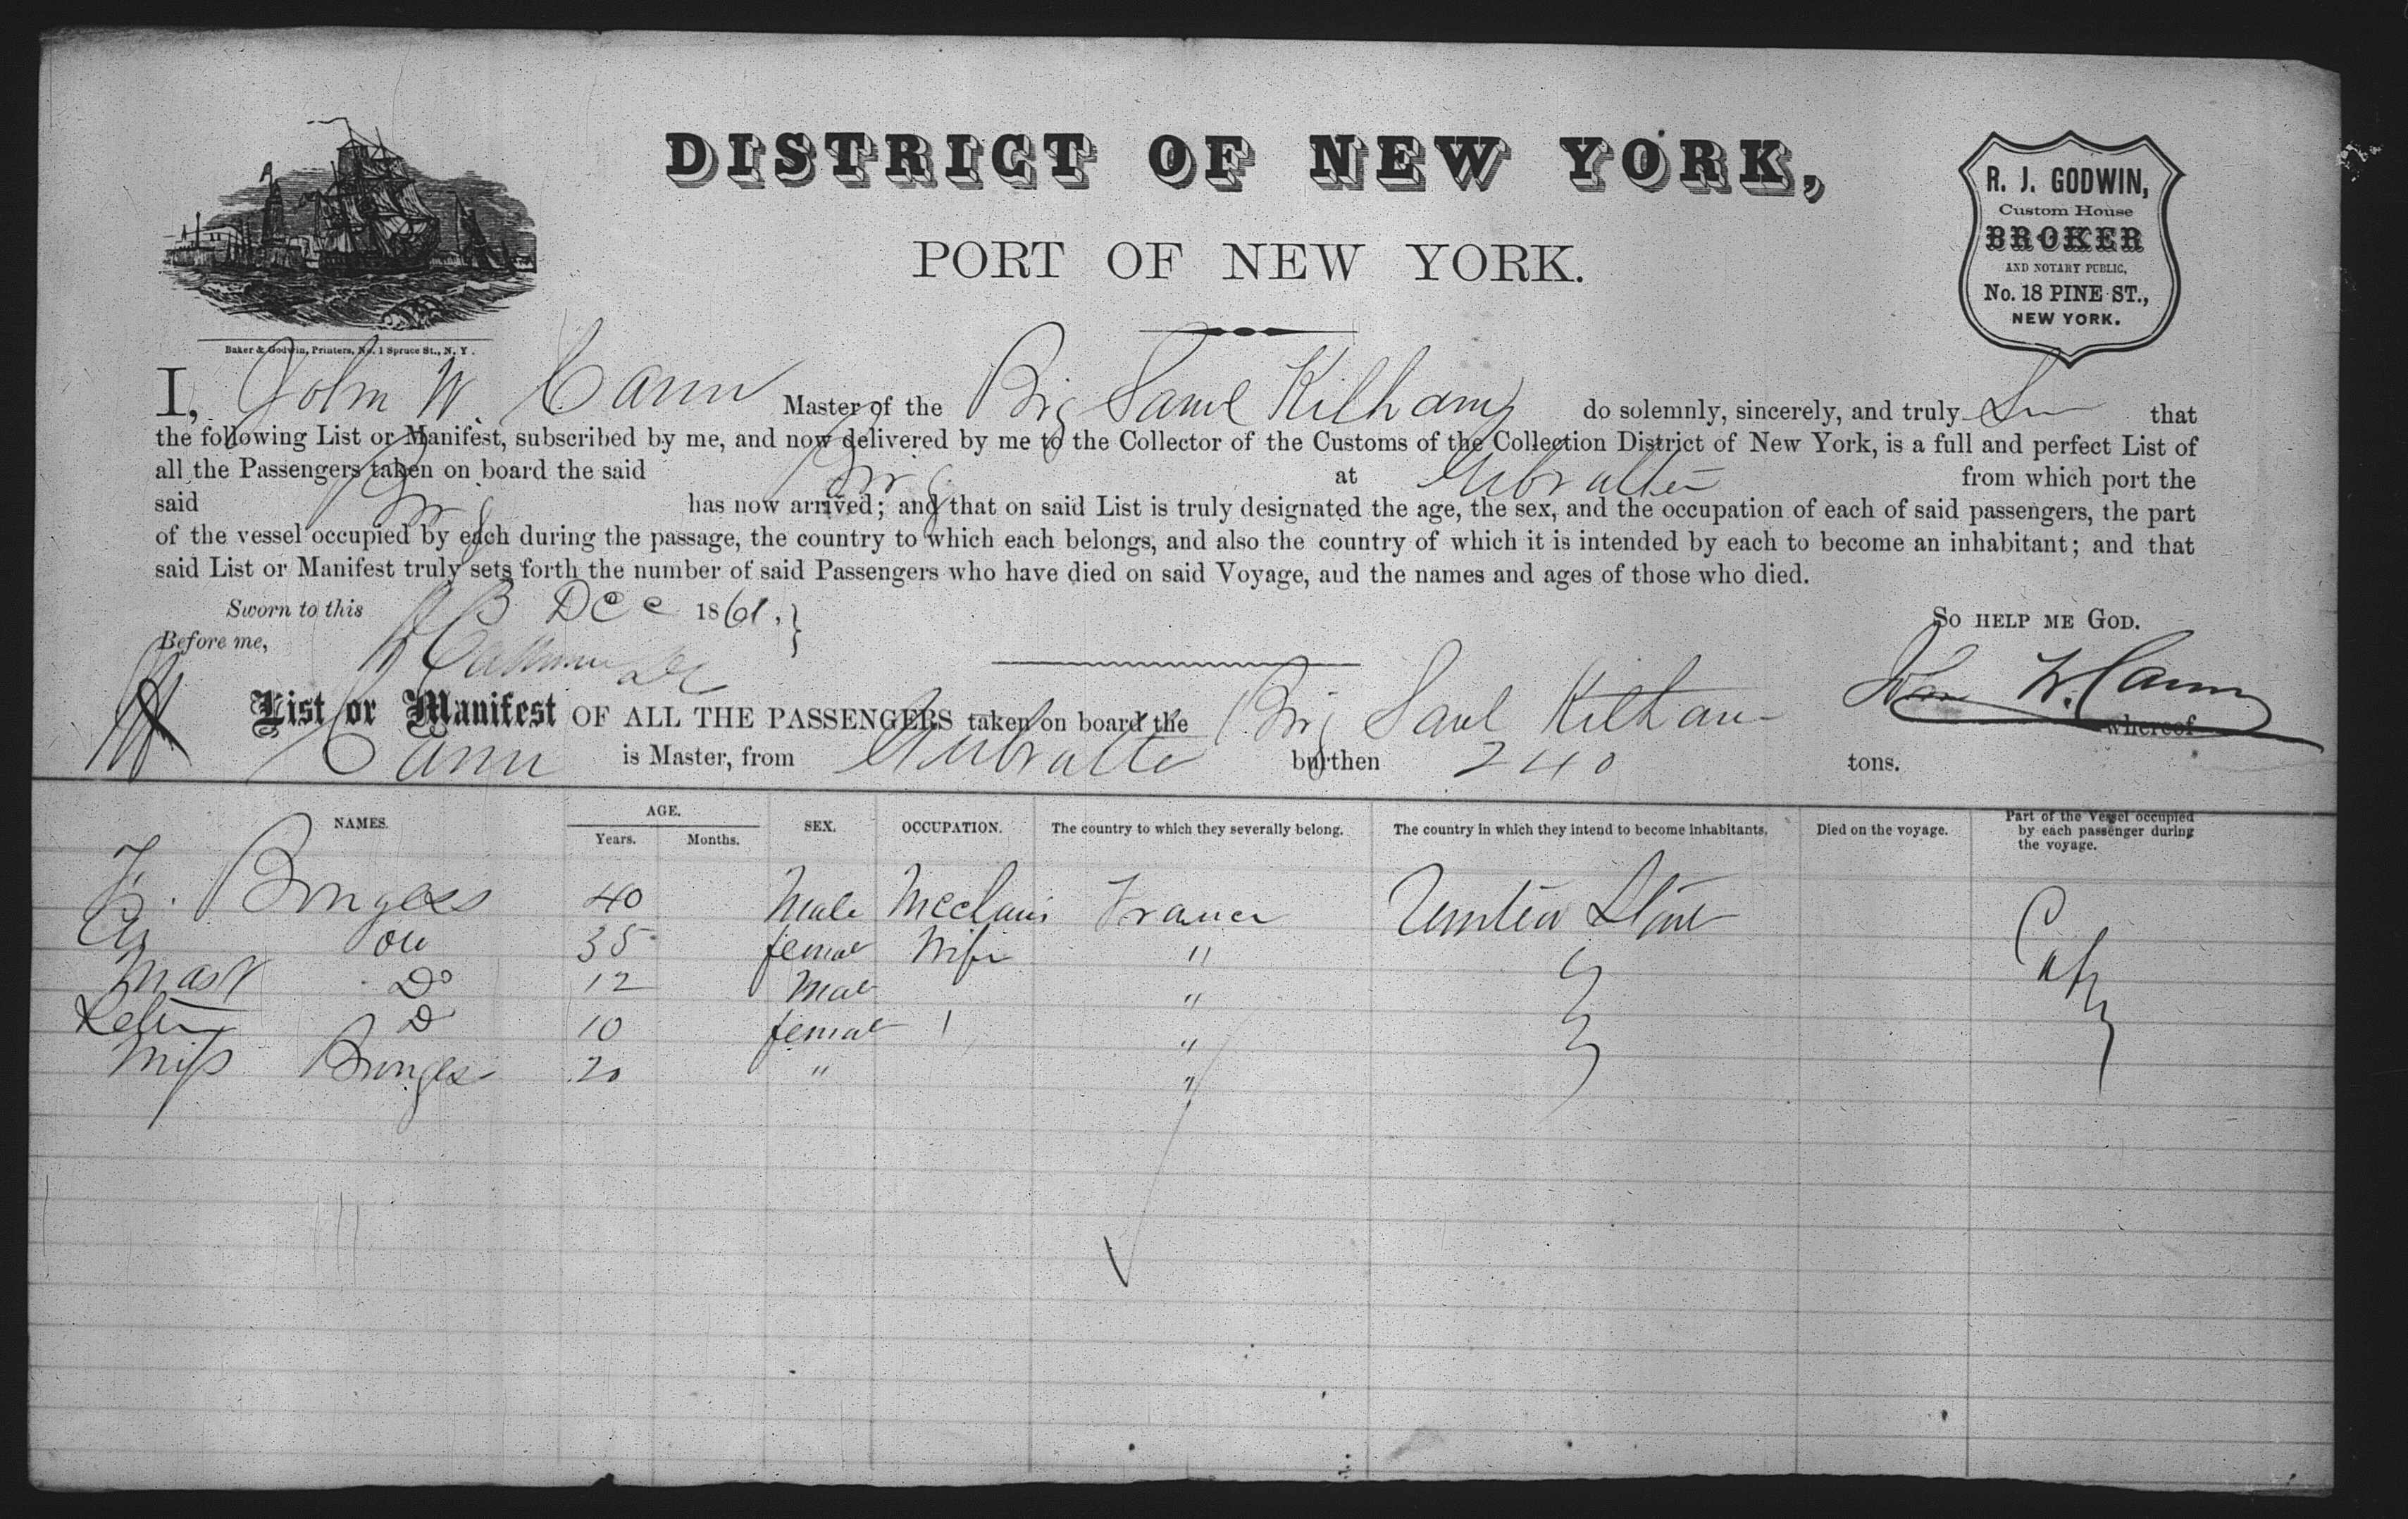 DISTRICT OF NEW YORK,
PORT OF NEW YORK.
R. J. GODWIN,
Custom House
BROKER
AND NOTARY PUBLIC,
No. 18 PINE ST.,
NEW YORK.
Baker & Godwin, Printers, No. 1 Spruce St., N. Y.
I, John W. Cann Master of the Brig Saml Kilham do solemnly, sincerely, and truly that
the following List or Manifest, subscribed by me, and now delivered by me to the Collector of the Customs of the Collection District of New York, is a full and perfect List of
all the Passengers taken on board the said Brig at Gibralter from which port the
said Brig has now arrived; and that on said List is truly designated the age, the sex, and the occupation of each of said passengers, the part
of the vessel occupied by each during the passage, the country to which each belongs, and also the country of which it is intended by each to become an inhabitant; and that
said List or Manifest truly sets forth the number of said Passengers who have died on said Voyage, and the names and ages of those who died.
Sworn to this Dec 1861,
So help me God.
Before me,
W. Cann
List or Manifest OF ALL THE PASSENGERS taken on board the Brig Saml Kilham whereof
Cann is Master, from Gibralter burthen 240 tons.
NAMES. AGE. Years. Months. SEX. OCCUPATION. The country to which they severally belong. The country in which they intend to become inhabitants. Died on the voyage. Part of the Vessel occupied by each passenger during the voyage.
Burgess 40 Male France United State
35 female Wife "
Mast Do 12 Male "
Do 10 female "
Miss Burges 20 " "